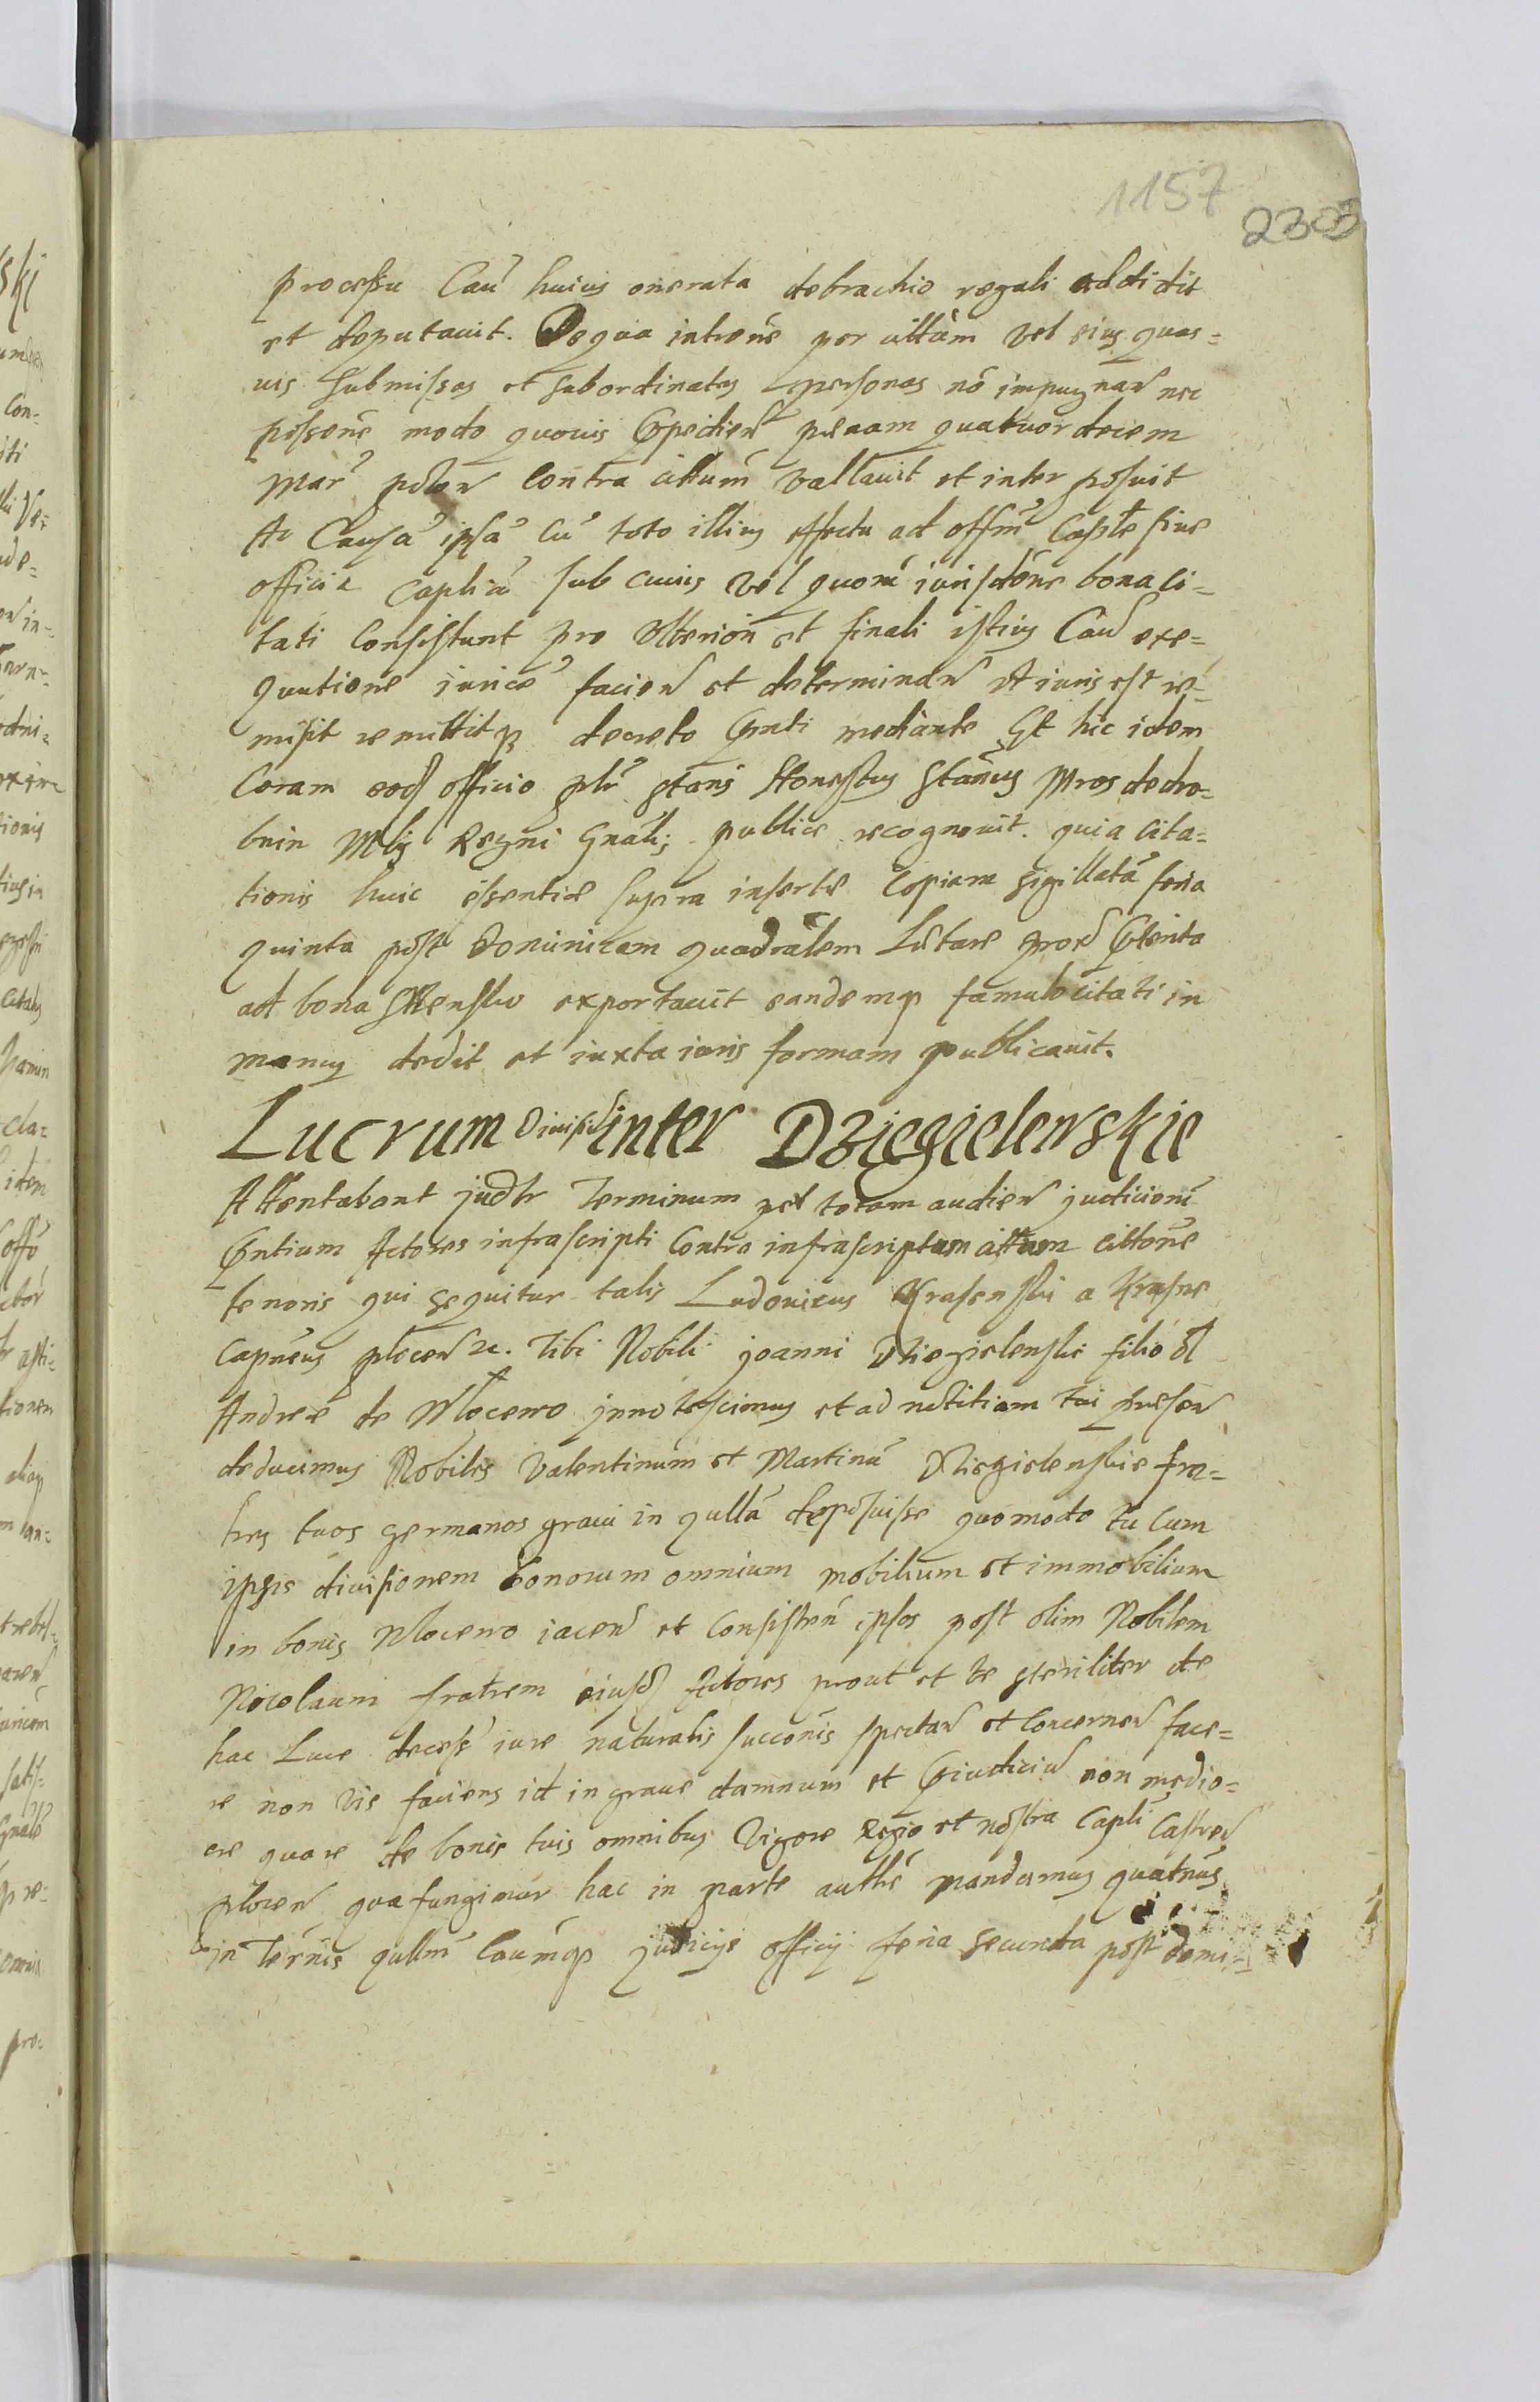 1157
2303
processu Cau͂ huius onerata de brachio regali addidit
et deputauit. De qua intro͂ne per cittãm vel eius quas=
uis submissas et subordinatas personas nõ impugnan͂ nec
posses͂ne modo quouis Expedien͂ pænam quatuordecem
Mar͂ polon͂ contra cittum͂ vallauit et interposuit
Ac Causã ipsã cũ toto illius effectu ad offm͂ Castr͂e siue
officia Caplia͂ sub cuius vel quorũ iurisd͂one bona ci=
tati Consistunt pro Vlteriori et finali istius Cau͂ exe=
qutione iurice͂ facien͂ et determinan͂ Vt iuris est re=
misit remittitq3 decreto pnti mediante Et hic idem
Coram eod officio pl͂r stans Honestus Stan͂us Mros de dro=
bnin Mlis Regni Gn͂alis publice recognouit. quia cita=
tionis huic essentiæ supra insertæ Copiam sigillatã feria
quinta post Dominicam quadra͂lem Lætare prox͂ pterita
ad bona exportauit eandemq3 famulo citati in
manus dedit et iuxta iuris formam publicauit.
Lucrum Diuisi͂s inter Dziegielewskie
Attentabant jud͂lr Terminum per totam audien͂ judiciorũ
pntium Actores infrascripti Contra infrascriptum cittum citto͂ne
tenoris qui sequitur talis Ludouicus Krasienski a Krasne
Capn͂eus plocen͂ &c. Tibi Nobili Joanni Dziegielenski filio ol
Andreæ de Wlocewo jnnotescimus et ad notitiam tui præsen͂
deducimus Nobiles Valentinum et Martinũ Dziegielenskie fra=
tres tuos germanos graui in qullã deposuisse quomodo tu cum
ipsis diuisionem bonorum omnium mobilium et immobilium
in bonis Wlocewo iacen͂ et Consisten͂ ipsos post olim Nobilem
Nicolaum fratrem eiusd Actores prout et te steriliter de
hac Luce decess͂ iure naturalis succ͂onis spectan͂ et concernen͂ face=
re non vis faciens id in graue damnum et piudiciu͂ non medio=
cre quare de bonis tuis omnibus Vigore Regio et nostra Capli͂ Castren͂
plocen͂ qua fungimur hac in parte auth͂e mandamus quatn͂us
in Term͂is qullm͂ Caum͂q3 judicys officij feria secunda post domi=